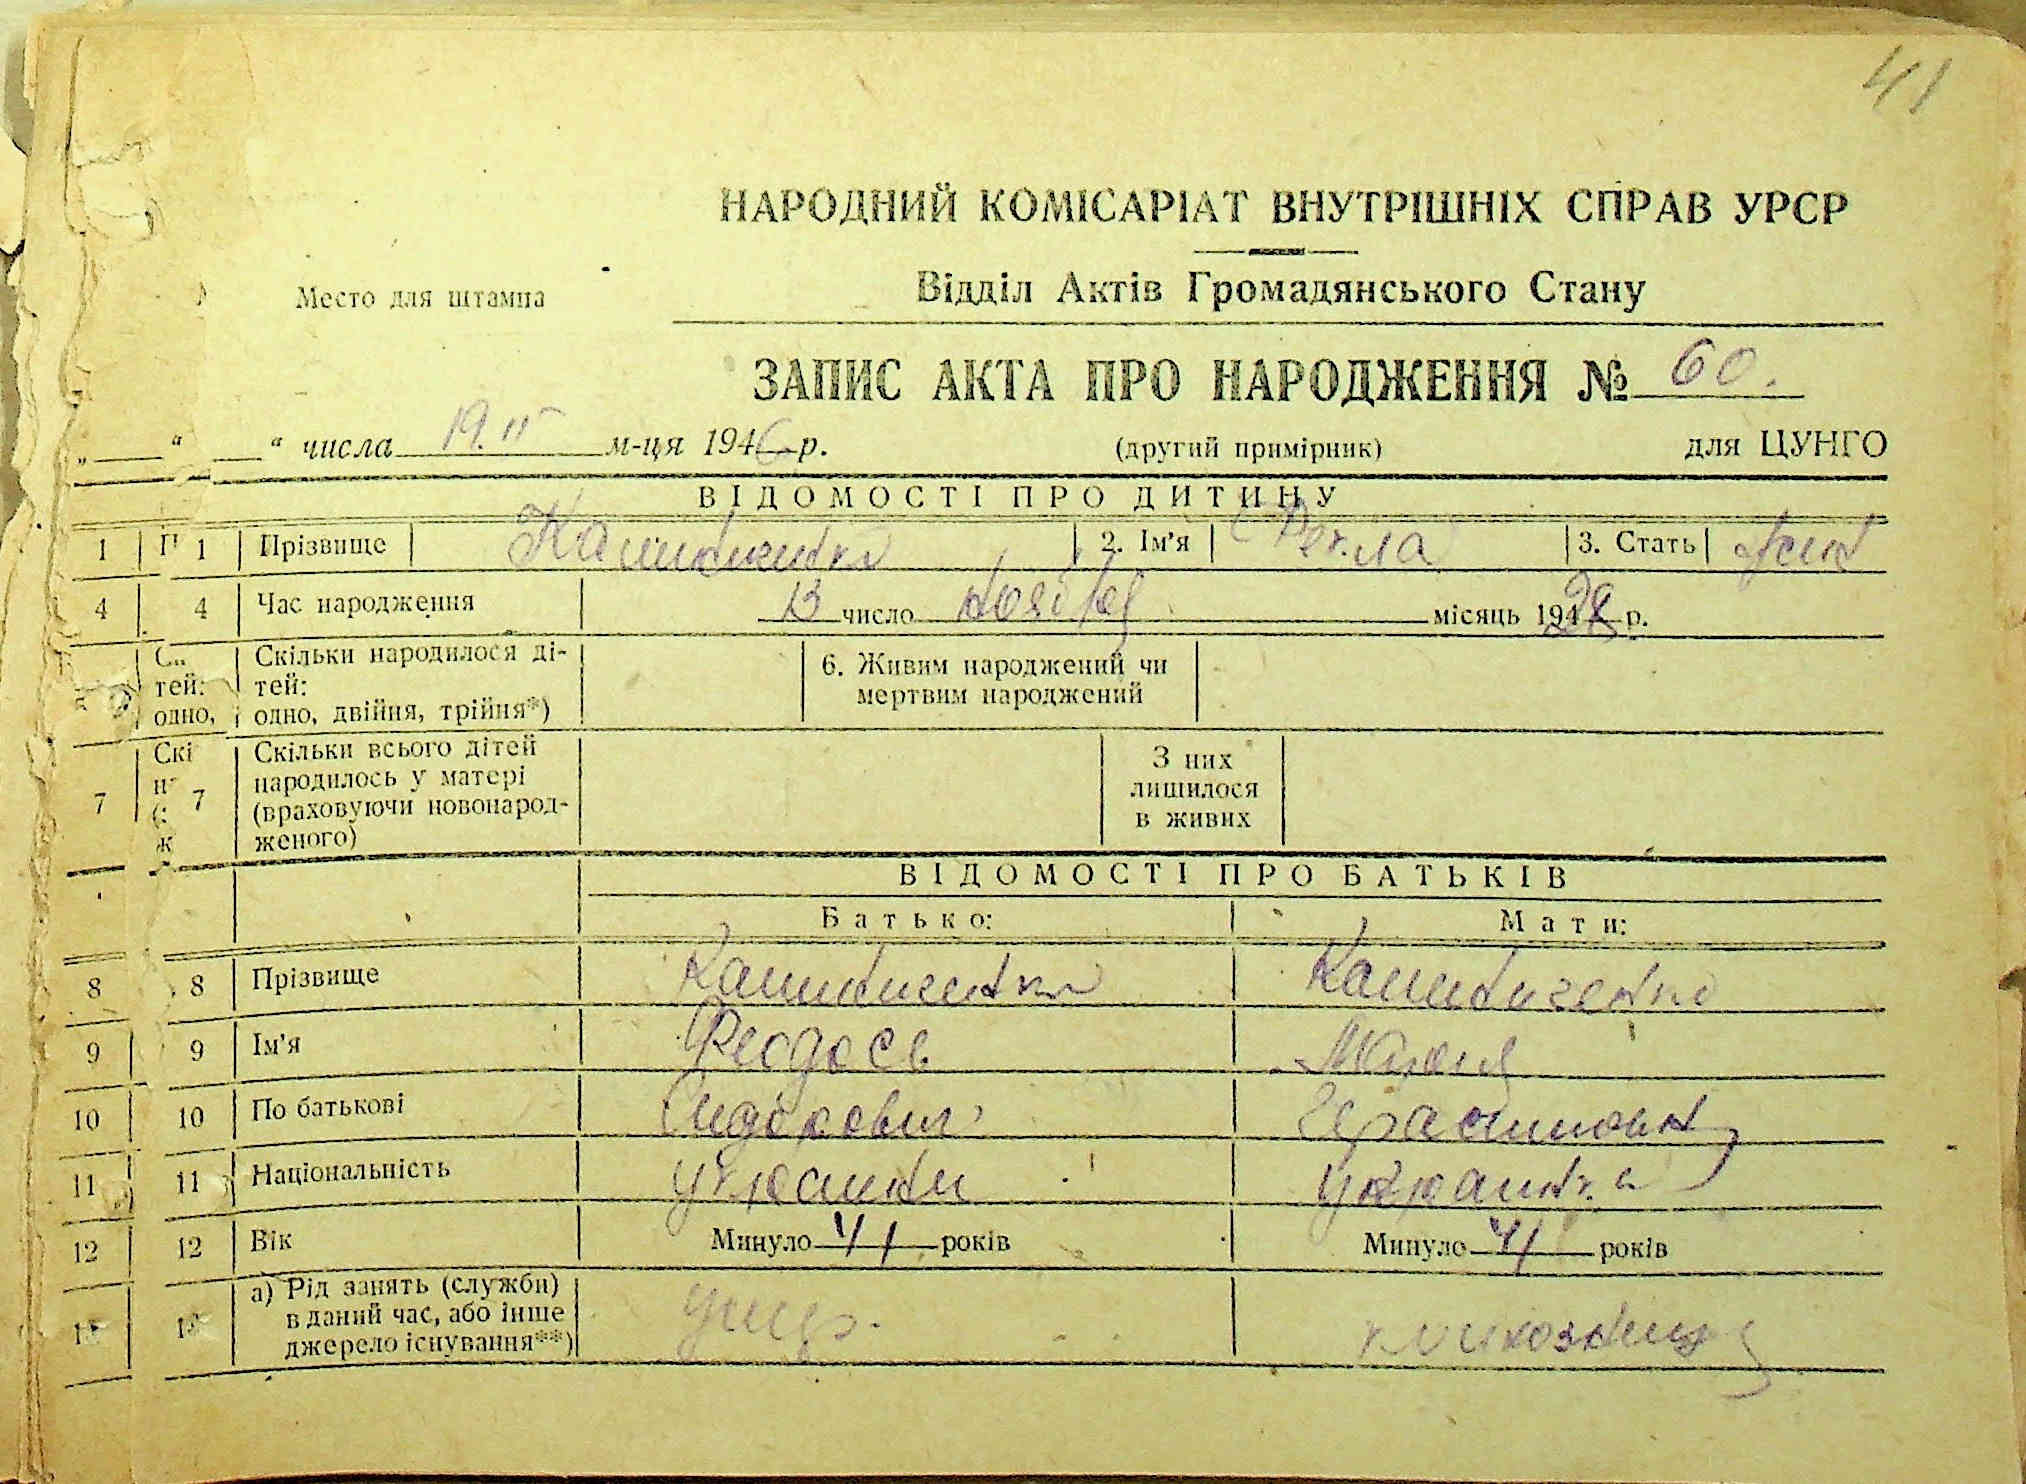 41
НАРОДНИЙ КОМІСАРІАТ ВНУТРІШНІХ СПРАВ УРСР
Место для штампа
Відділ Актів Громадянського Стану
ЗАПИС АКТА ПРО НАРОДЖЕННЯ № 60.
„ “ “ числа 19. II м-ця 1946 р. (другий примірник) для ЦУНГО
ВІДОМОСТІ ПРО ДИТИНУ
1 П 1 Прізвище 2. Ім'я Текля 3. Стать жін
4 4 Час народження 13 число місяць 194 р.
Скільки народилося ді-
тей: тей:
одно, одно, двійня, трійня*)
6. Живим народжений чи
мертвим народжений
7 7 Скі Скільки всього дітей
народилось у матері
(враховуючи новонарод-
женого)
З них
лишилося
в живих
ВІДОМОСТІ ПРО БАТЬКІВ
Батько: Мати:
8 8 Прізвище
9 9 Ім'я Феодось
10 10 По батькові Сидорович
11 11 Національність українц українка
12 12 Вік Минуло 41 років Минуло 41 років
а) Рід занять (служби)
в даний час, або інше
джерело існування**)
колхозниця